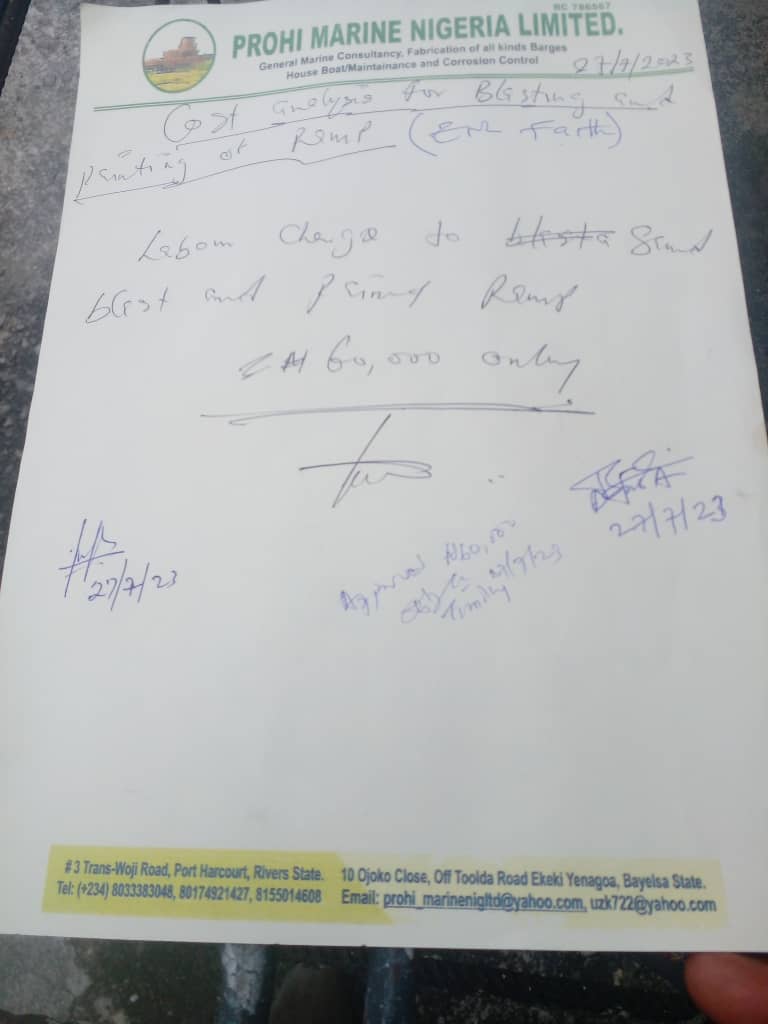 RC 786567
PROHI MARINE NIGERIA LIMITED.
General Marine Consultancy, Fabrication of all kinds Barges
House Boat/Maintainance and Corrosion Control
27/7/2023
Cost analysis for Blasting and
painting of Ramp (
Labour Charge to blasta Sand
blast and paint Ramp
₦ 60,000 only
27/7/23
27/7/23
Approved ₦60,000
# 3 Trans-Woji Road, Port Harcourt, Rivers State.
Tel: (+234) 8033383048, 80174921427, 8155014608
10 Ojoko Close, Off Toolda Road Ekeki Yenagoa, Bayelsa State.
Email: prohi_marinenigltd@yahoo.com, uzk722@yahoo.com